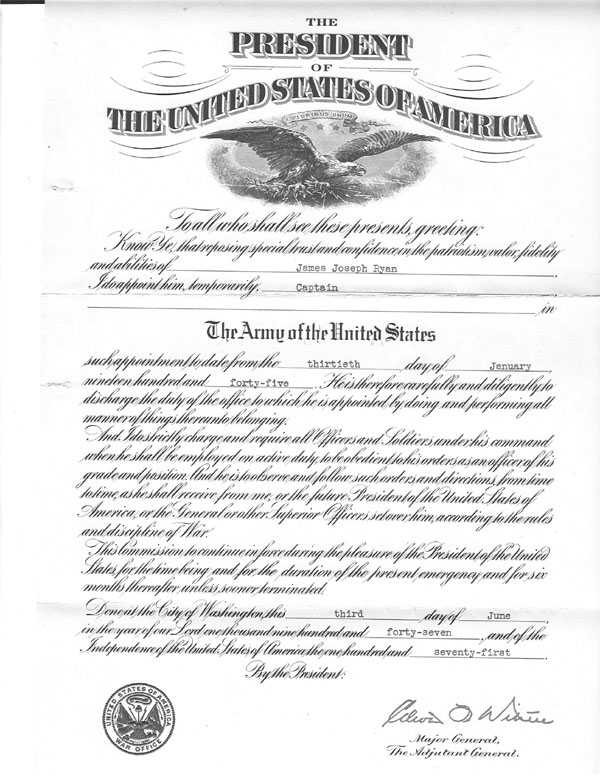 THE
PRESIDENT
OF
THE UNITED STATES OF AMERICA
E PLURIBUS UNUM
To all who shall see these presents, greeting:
Know Ye, that reposing special trust and confidence in the patriotism, valor, fidelity
and abilities of James Joseph Ryan,
I do appoint him, temporarily, Captain
in
The Army of the United States
such appointment to date from the thirtieth day of January,
nineteen hundred and forty-five. He is therefore carefully and diligently to
discharge the duty of the office to which he is appointed by doing and performing all
manner of things thereunto belonging.
And I do strictly charge and require all Officers and Soldiers under his command
when he shall be employed on active duty, to be obedient to his orders as an officer of his
grade and position. And he is to observe and follow such orders and directions, from time
to time, as he shall receive from me, or the future President of the United States of
America, or the General or other Superior Officers set over him, according to the rules
and discipline of War.
This Commission to continue in force during the pleasure of the President of the United
States, for the time being and for the duration of the present emergency and for six
months thereafter unless sooner terminated.
Done at the City of Washington, this third day of June
in the year of our Lord one thousand nine hundred and forty-seven, and of the
Independence of the United States of America the one hundred and seventy-first.
By the President:
UNITED STATES OF AMERICA
WAR OFFICE
Major General,
The Adjutant General.